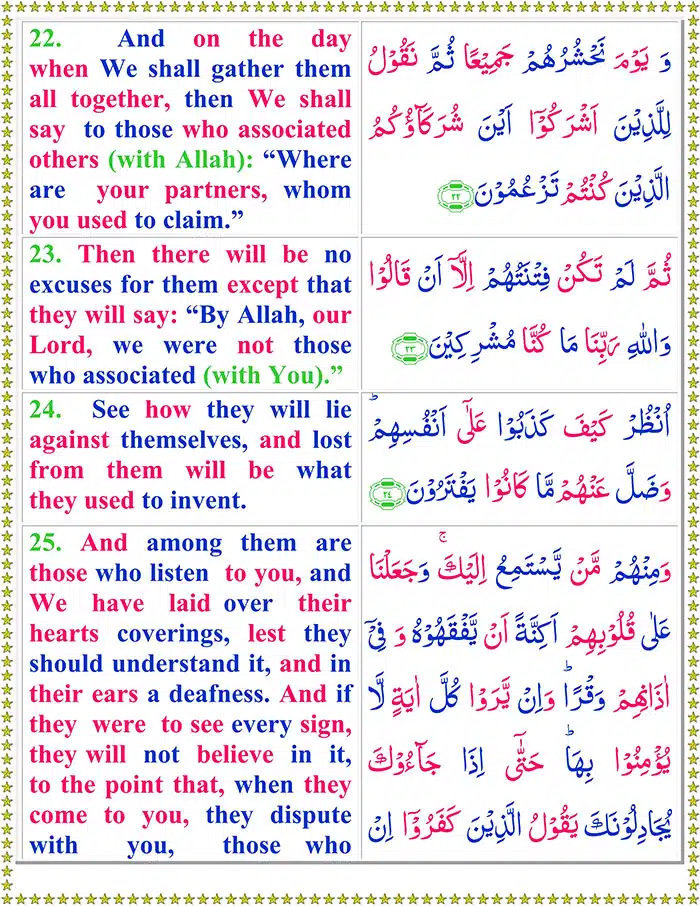 22. And on the day
when We shall gather them
all together, then We shall
say to those who associated
others (with Allah): “Where
are your partners, whom
you used to claim.”
وَ يَوْمَ نَحْشُرُهُمْ جَمِيْعًا ثُمَّ نَقُوْلُ
لِلَّذِيْنَ اَشْرَكُوْۤا اَيْنَ شُرَكَآؤُكُمُ
الَّذِيْنَ كُنْتُمْ تَزْعُمُوْنَ ۝۲۲
23. Then there will be no
excuses for them except that
they will say: “By Allah, our
Lord, we were not those
who associated (with You).”
ثُمَّ لَمْ تَكُنْ فِتْنَتُهُمْ اِلَّاۤ اَنْ قَالُوْا
وَاللّٰهِ رَبِّنَا مَا كُنَّا مُشْرِكِيْنَ ۝۲۳
24. See how they will lie
against themselves, and lost
from them will be what
they used to invent.
اُنْظُرْ كَيْفَ كَذَبُوْا عَلٰۤى اَنْفُسِهِمْ ؕ
وَضَلَّ عَنْهُمْ مَّا كَانُوْا يَفْتَرُوْنَ ۝۲۴
25. And among them are
those who listen to you, and
We have laid over their
hearts coverings, lest they
should understand it, and in
their ears a deafness. And if
they were to see every sign,
they will not believe in it,
to the point that, when they
come to you, they dispute
with you, those who
وَمِنْهُمْ مَّنْ يَّسْتَمِعُ اِلَيْكَ ۚ وَجَعَلْنَا
عَلٰى قُلُوْبِهِمْ اَكِنَّةً اَنْ يَّفْقَهُوْهُ وَ فِیْۤ
اٰذَانِهِمْ وَقْرًا ؕ وَاِنْ يَّرَوْا كُلَّ اٰيَةٍ لَّا
يُؤْمِنُوْا بِهَا ؕ حَتّٰۤى اِذَا جَآءُوْكَ
يُجَادِلُوْنَكَ يَقُوْلُ الَّذِيْنَ كَفَرُوْۤا اِنْ